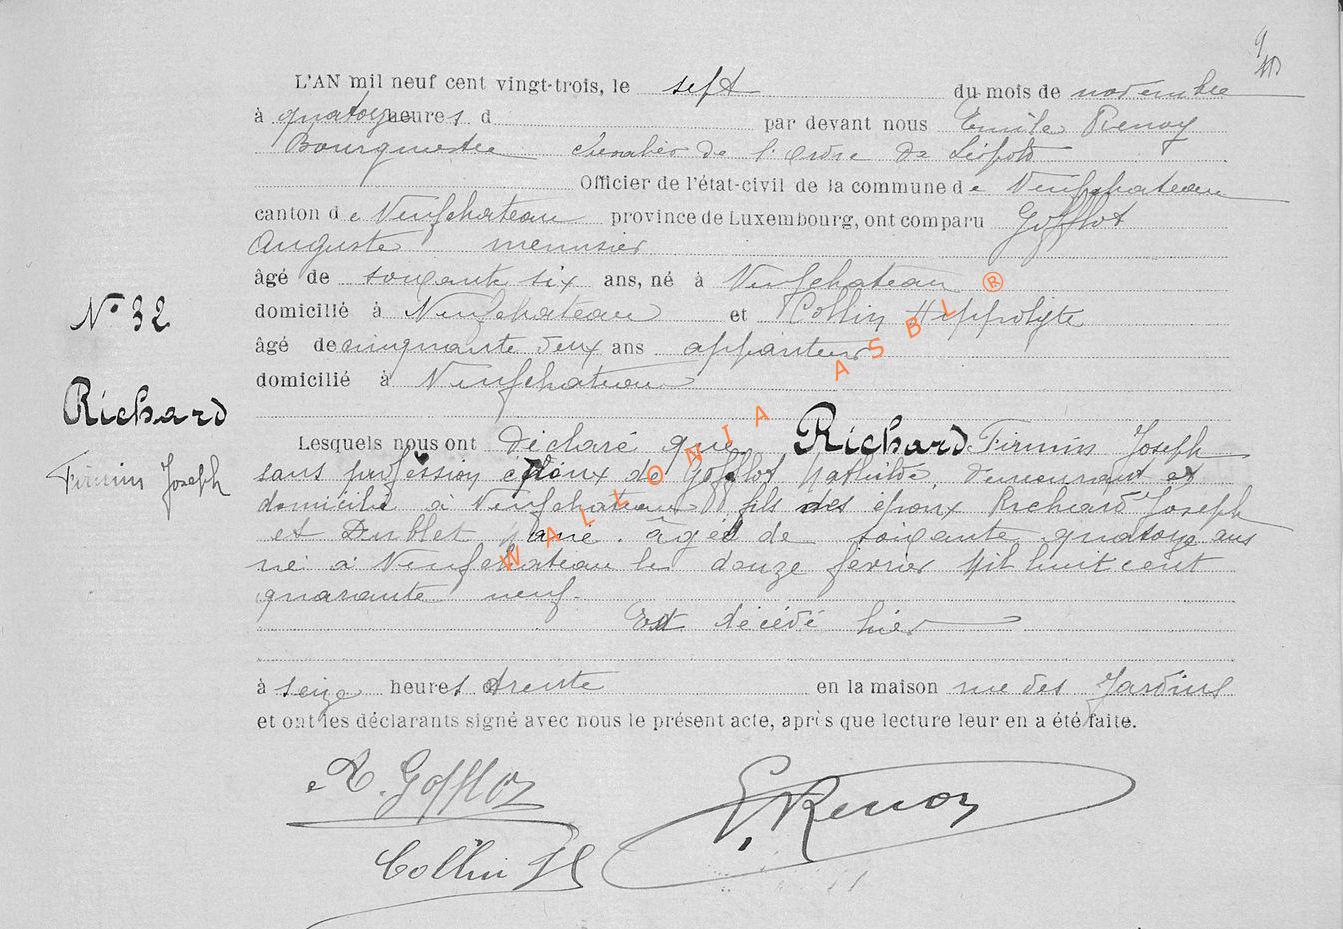 L'AN mil neuf cent vingt-trois, le sept du mois de novembre
à quatorze heures d par devant nous Emile Renoy
Bourgmestre chevalier de l'ordre de Léopold
Officier de l'état-civil de la commune de Neufchateau
canton de Neufchateau province de Luxembourg, ont comparu Gofflot
Auguste menuisier
âgé de soixante six ans, né à Neufchateau
domicilié à Neufchateau et Collin Hippolyte
âgé de cinquante deux ans appariteur
domicilié à Neufchateau
N° 32
Richard
Firmin Joseph
Lesquels nous ont déclaré que Richard Firmin Joseph
sans profession époux de Gofflot Mathilde, demeurant et
domicilié à Neufchateau fils des époux Richard Joseph
et Dublet âgé de soixante quatorze ans
né à Neufchateau le douze février Mil huit cent
quarante neuf.
Est décédé hier
à seize heures trente en la maison rue des Jardins
et ont les déclarants signé avec nous le présent acte, après que lecture leur en a été faite.
A. Gofflot
E. Renoy
Collin H
WALLONIA ASBL ®